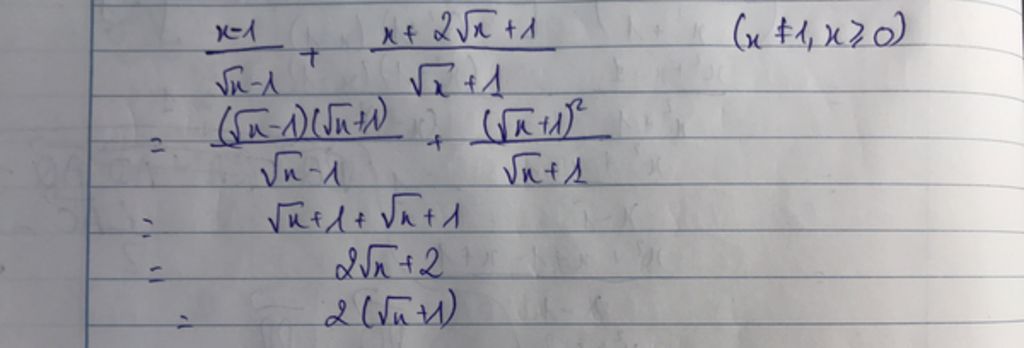 \frac{x-1}{\sqrt{x}-1} + \frac{x+2\sqrt{x}+1}{\sqrt{x}+1} (x ≠ 1, x ⩾ 0)
= \frac{(\sqrt{x}-1)(\sqrt{x}+1)}{\sqrt{x}-1} + \frac{(\sqrt{x}+1)^2}{\sqrt{x}+1}
= \sqrt{x}+1+\sqrt{x}+1
= 2\sqrt{x}+2
= 2(\sqrt{x}+1)